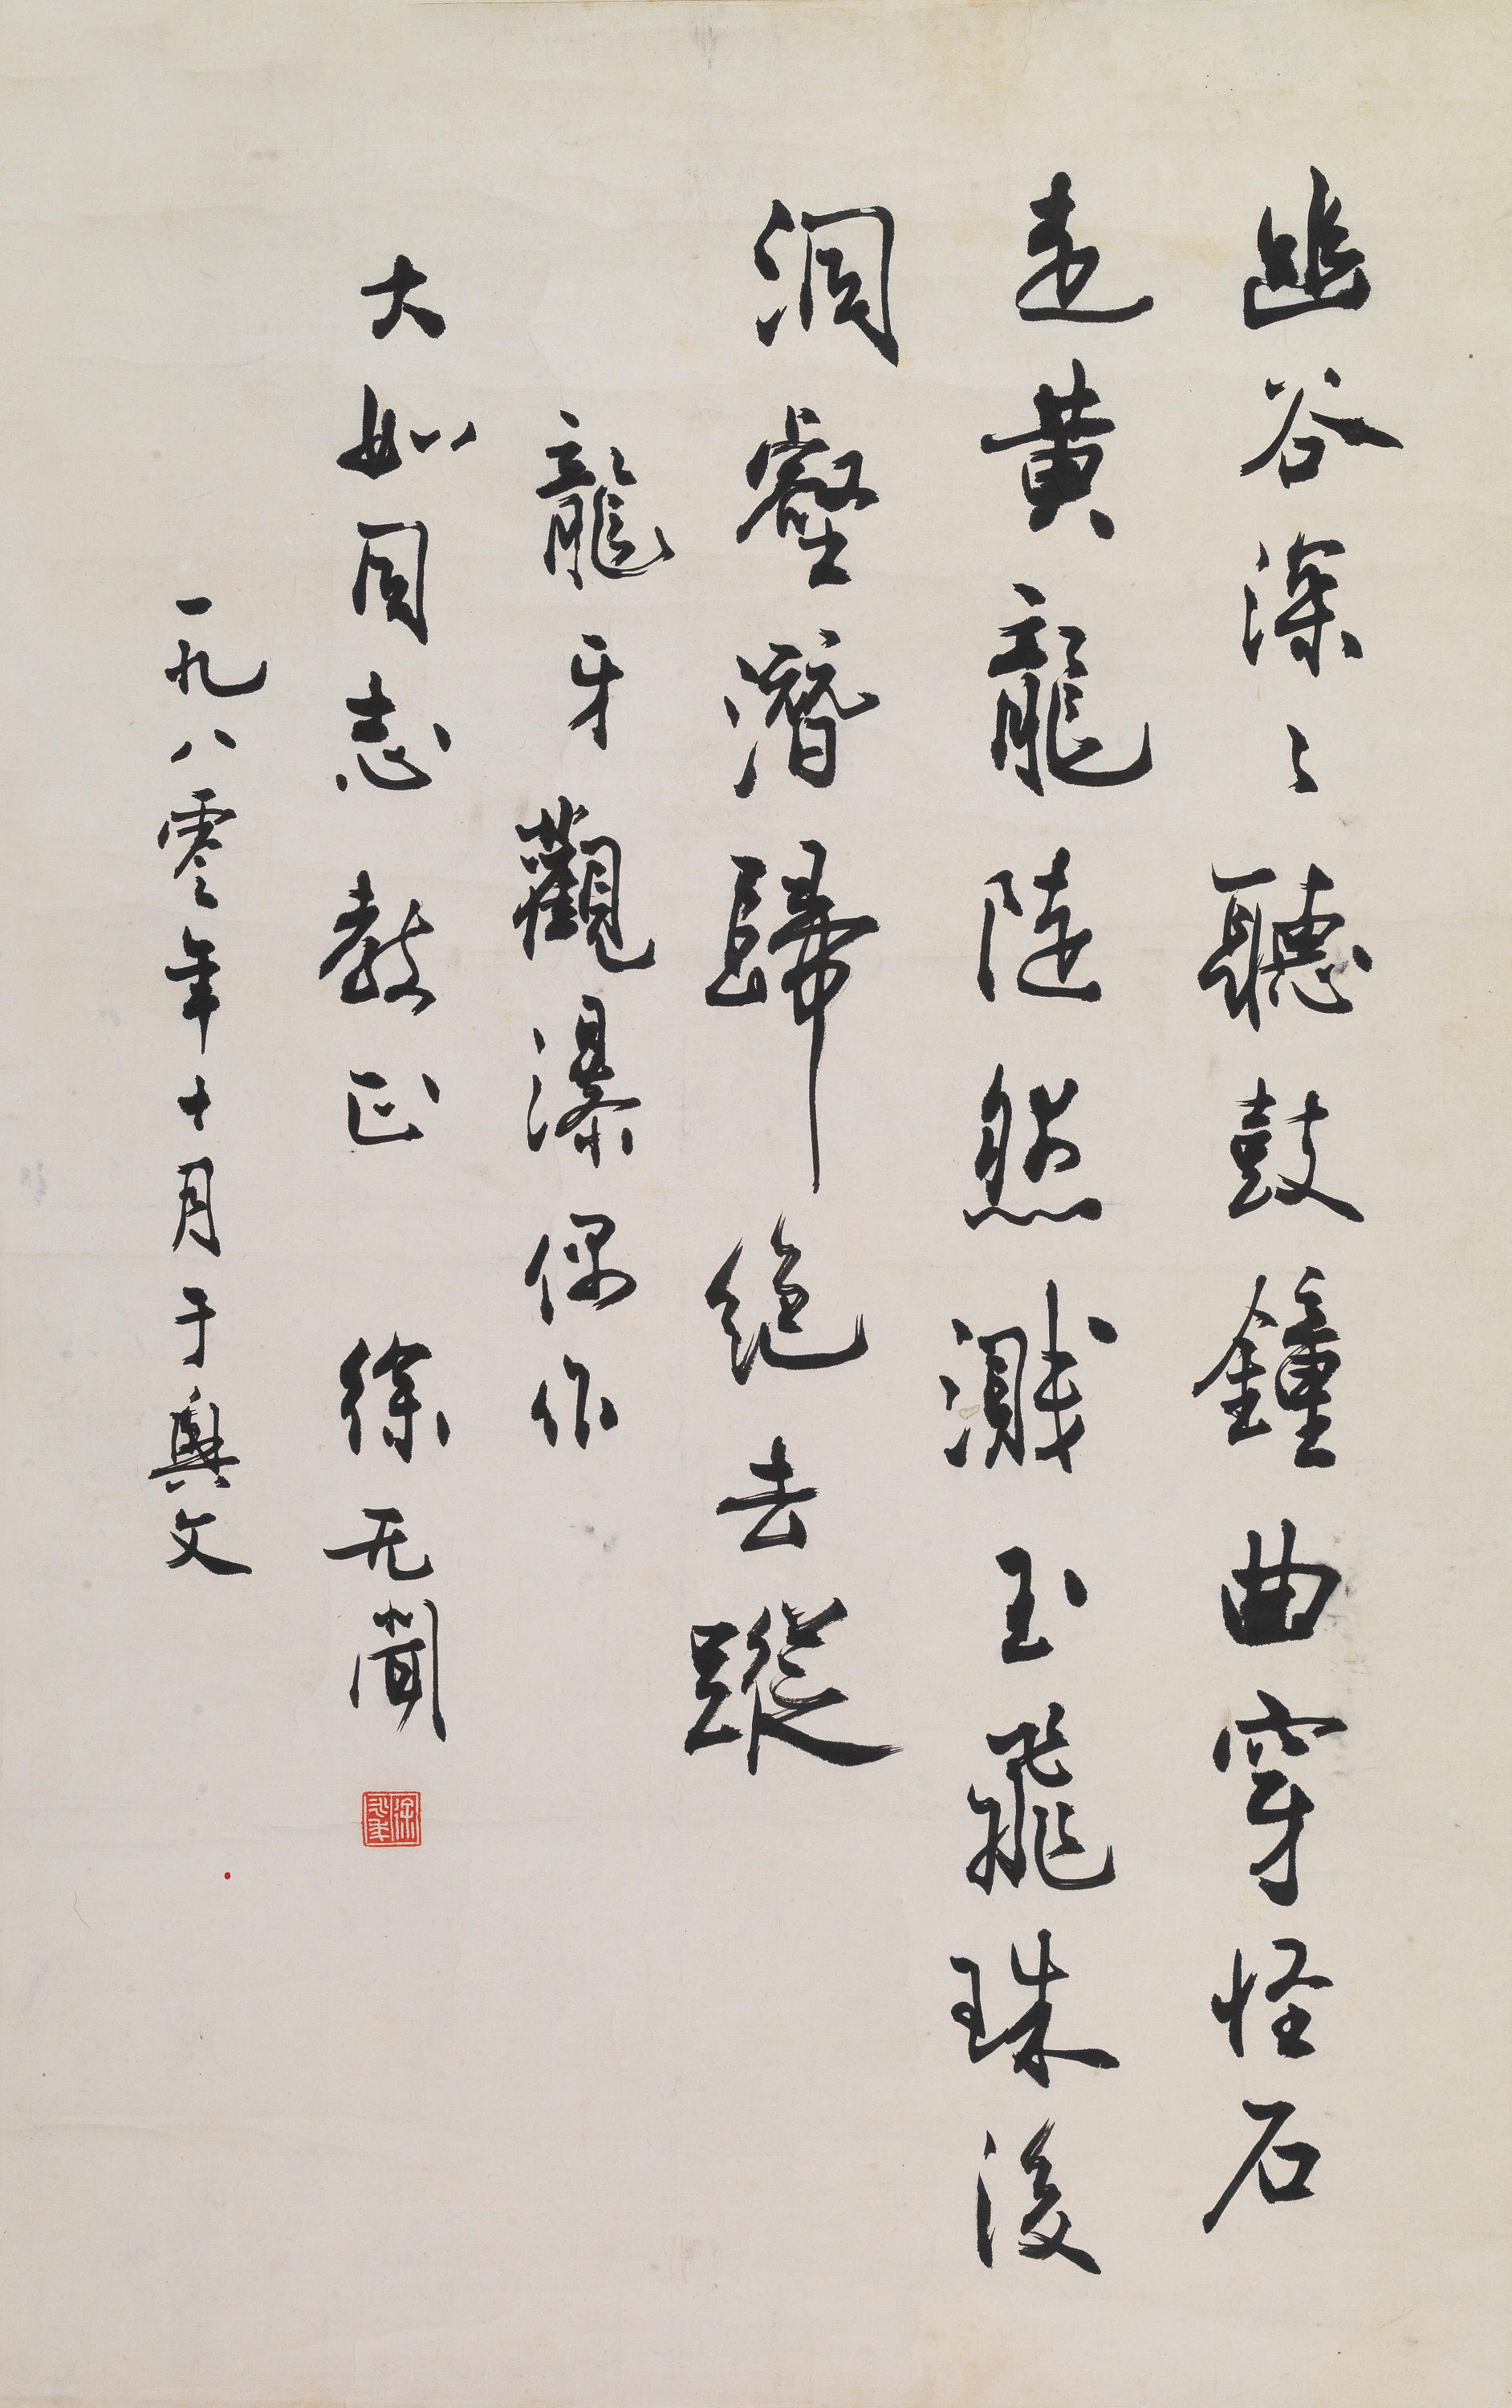 幽谷深々聽鼓鐘曲穿怪石
走黃龍陡然濺玉飛珠後
洞壑潛歸絕去蹤
龍牙觀瀑偶作
大如同志教正 徐无聞
一九八零年十月于興文
徐永年